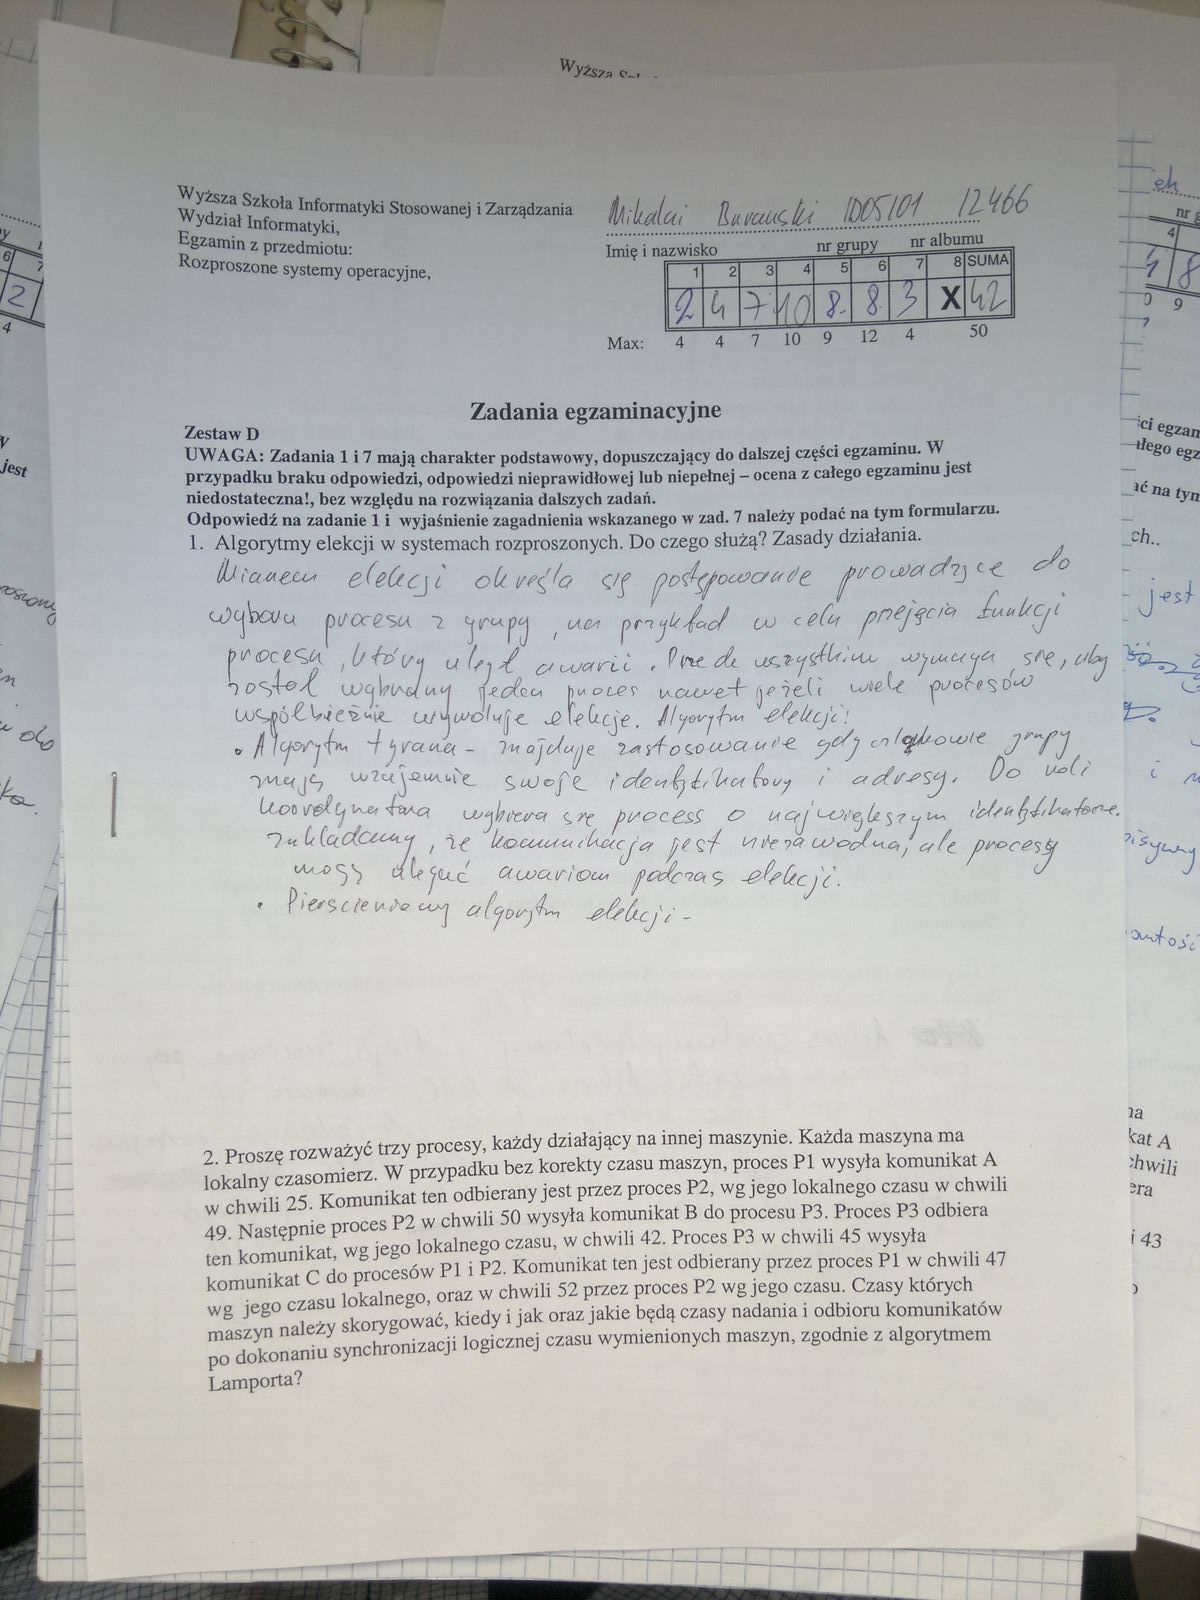 Wyższa
Wyższa Szkoła Informatyki Stosowanej i Zarządzania
Wydział Informatyki,
Egzamin z przedmiotu:
Rozproszone systemy operacyjne,
Mikalai ID05101 12466
Imię i nazwisko nr grupy nr albumu
1 2 3 4 5 6 7 8 SUMA
2 4 7 10 8 8 3 X 42
Max: 4 4 7 10 9 12 4 50
Zadania egzaminacyjne
Zestaw D
UWAGA: Zadania 1 i 7 mają charakter podstawowy, dopuszczający do dalszej części egzaminu. W
przypadku braku odpowiedzi, odpowiedzi nieprawidłowej lub niepełnej – ocena z całego egzaminu jest
niedostateczna!, bez względu na rozwiązania dalszych zadań.
Odpowiedź na zadanie 1 i wyjaśnienie zagadnienia wskazanego w zad. 7 należy podać na tym formularzu.
1. Algorytmy elekcji w systemach rozproszonych. Do czego służą? Zasady działania.
Mianem elekcji określa się postępowanie prowadzące do
wyboru procesu z grupy, na przykład w celu przejęcia funkcji
procesu, który uległ awarii. Prze de wszystkim wymaga się, aby
został wybrany jeden proces nawet jeżeli wiele procesów
współbieżnie wywołuje elekcje. Algorytm elekcji:
• Algorytm tyrana - znajduje zastosowanie gdy członkowie grupy
znają wzajemnie swoje identyfikatory i adresy. Do roli
koordynatora wybiera się process o największym identyfikatorze.
zakładamy, że komunikacja jest niezawodna, ale procesy
mogą ulegać awariom podczas elekcji.
• Pierscieniowy algorytm elekcji -
2. Proszę rozważyć trzy procesy, każdy działający na innej maszynie. Każda maszyna ma
lokalny czasomierz. W przypadku bez korekty czasu maszyn, proces P1 wysyła komunikat A
w chwili 25. Komunikat ten odbierany jest przez proces P2, wg jego lokalnego czasu w chwili
49. Następnie proces P2 w chwili 50 wysyła komunikat B do procesu P3. Proces P3 odbiera
ten komunikat, wg jego lokalnego czasu, w chwili 42. Proces P3 w chwili 45 wysyła
komunikat C do procesów P1 i P2. Komunikat ten jest odbierany przez proces P1 w chwili 47
wg jego czasu lokalnego, oraz w chwili 52 przez proces P2 wg jego czasu. Czasy których
maszyn należy skorygować, kiedy i jak oraz jakie będą czasy nadania i odbioru komunikatów
po dokonaniu synchronizacji logicznej czasu wymienionych maszyn, zgodnie z algorytmem
Lamporta?
jest
6 7
2
4
4
8
9
na tym
ch..
jest
i
kat A
chwili
i 43